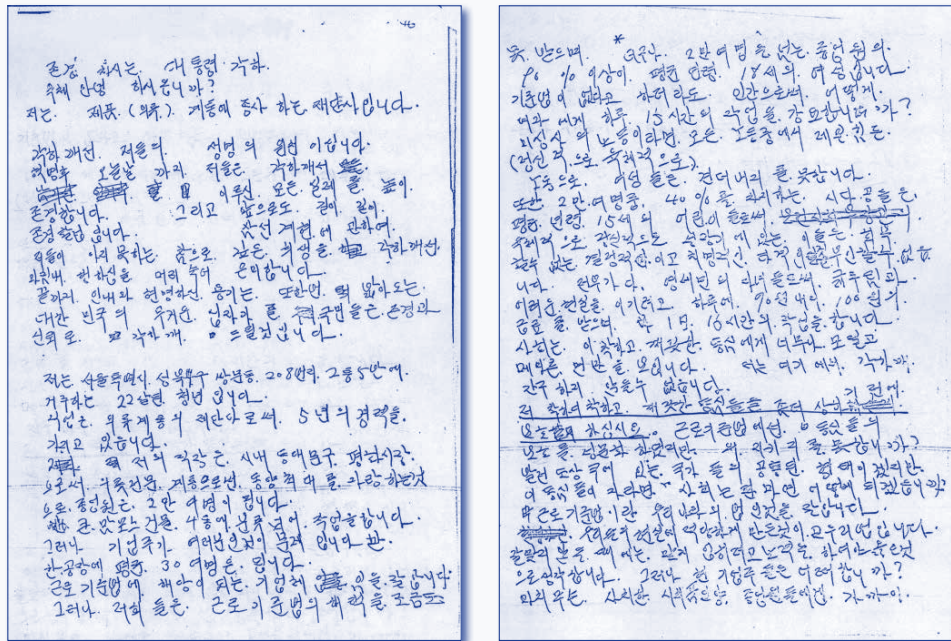 존경 하시는. 대통령 각하
옥체 안녕 하시옵니까?
저는. 제품. (의류). 계통에 종사 하는 재단사입니다.
각하께선. 저들의 생명의 원천 이십니다.
혁명후 오늘날 까지 저들은. 각하께서
이루신 모든 실제를 높이
존경합니다. 그리고 앞으로도. 길이 길이
존경 할겁니다. 삼선 개헌에 관하여.
저들이 아지 못하는 참으로 깊은. 희생을. 각하께선
마침내. 행하심을 머리 숙여 은미합니다.
끝까지. 인내와 현명하신 용기는. 또한번 밝아오는.
대한 민국의 무거운. 십자가를. 국민들은. 존경과
신뢰로. 각하께. 드릴것입니다.
저는 서울특별시. 성북구 쌍문동. 208번지. 2통5반에.
거주하는 22살된. 청년입니다.
직업은. 의류계통의 재단사로써. 5년의 경력을.
가지고 있습니다.
저의 직장은. 시내 동대문구 평화시장.
으로써. 의류전문. 계통으로썬. 동양최대를. 자랑하는것
으로. 종업원은. 2만 여명이 됩니다.
큰. 맘모스건물. 4동에 분류되어. 작업을합니다.
그러나 기업주가 여러분인것이 문제입니다만
한공장에 평균. 30여명은. 됩니다.
근로기준법에. 해당이 되는. 기업체임을 잘 압니다.
그러나. 저희들은. 근로기준법의 혜택을 조금도
못 받으며. 더구나 2만여명을 넘는. 종업원의.
90%이상이. 평균 연령. 18세의. 여성입니다.
기준법이 없다고 하더라도. 인간으로써. 어떻게.
여자에게 하루 15시간의 작업을. 강요합니까?
미싱사의 노동이라면. 모든 노동중에서 제일 힘든.
(정신적.으로. 육체적으로)
노동으로. 여성들은. 견뎌내지를 못합니다.
또한. 2만여명중. 40%를 차지하는. 시다공들은.
평균 연령. 15세의 어린이들로써.
육체적으로. 정신적으로. 성장기에 있는. 이들은.
없는. 결정적인이고 치명적인. 타격인것을부인할수.없읍
니다. 전부가 다. 영세민의 자녀들로써. 굶주림과.
어려운. 현실을. 이기려고. 하루에. 90원 내지. 100원의
급료를. 받으며. 1일. 16시간의. 작업을. 합니다.
사회는. 이 착하고. 깨끗한. 동심에게 너무나 모질고
메마른. 면만을 보입니다. 저는 여기에서. 각하께.
간구 하지 않을수 없습니다.
저 착하디착하고. 깨끗한 동심들을. 좀더 상하기 전에.
보호하십시요. 근로기준법에선. 동심들의
보호를 성문화 하였지만. 왜. 지키지를.못합니까?
발전도상국에. 있는. 국가들의 공통된. 형태이겠지만.
이 동심들이 자라면. 사회는 과연 어떻게 되겠습니까?
근로기준법이란 우리나라의 법인것을 잘압니다.
우리의 현실에 적당하게 만든것이 곧우리법입니다.
잘맞지 않을 때에는. 맞게 입히려고 노력을. 하여야 옳은것
으로생각합니다. 그러나 현 기업주들은 어떠합니까?
마치무슨. 사치한 사치품인양. 종업원들에겐. 가까이.